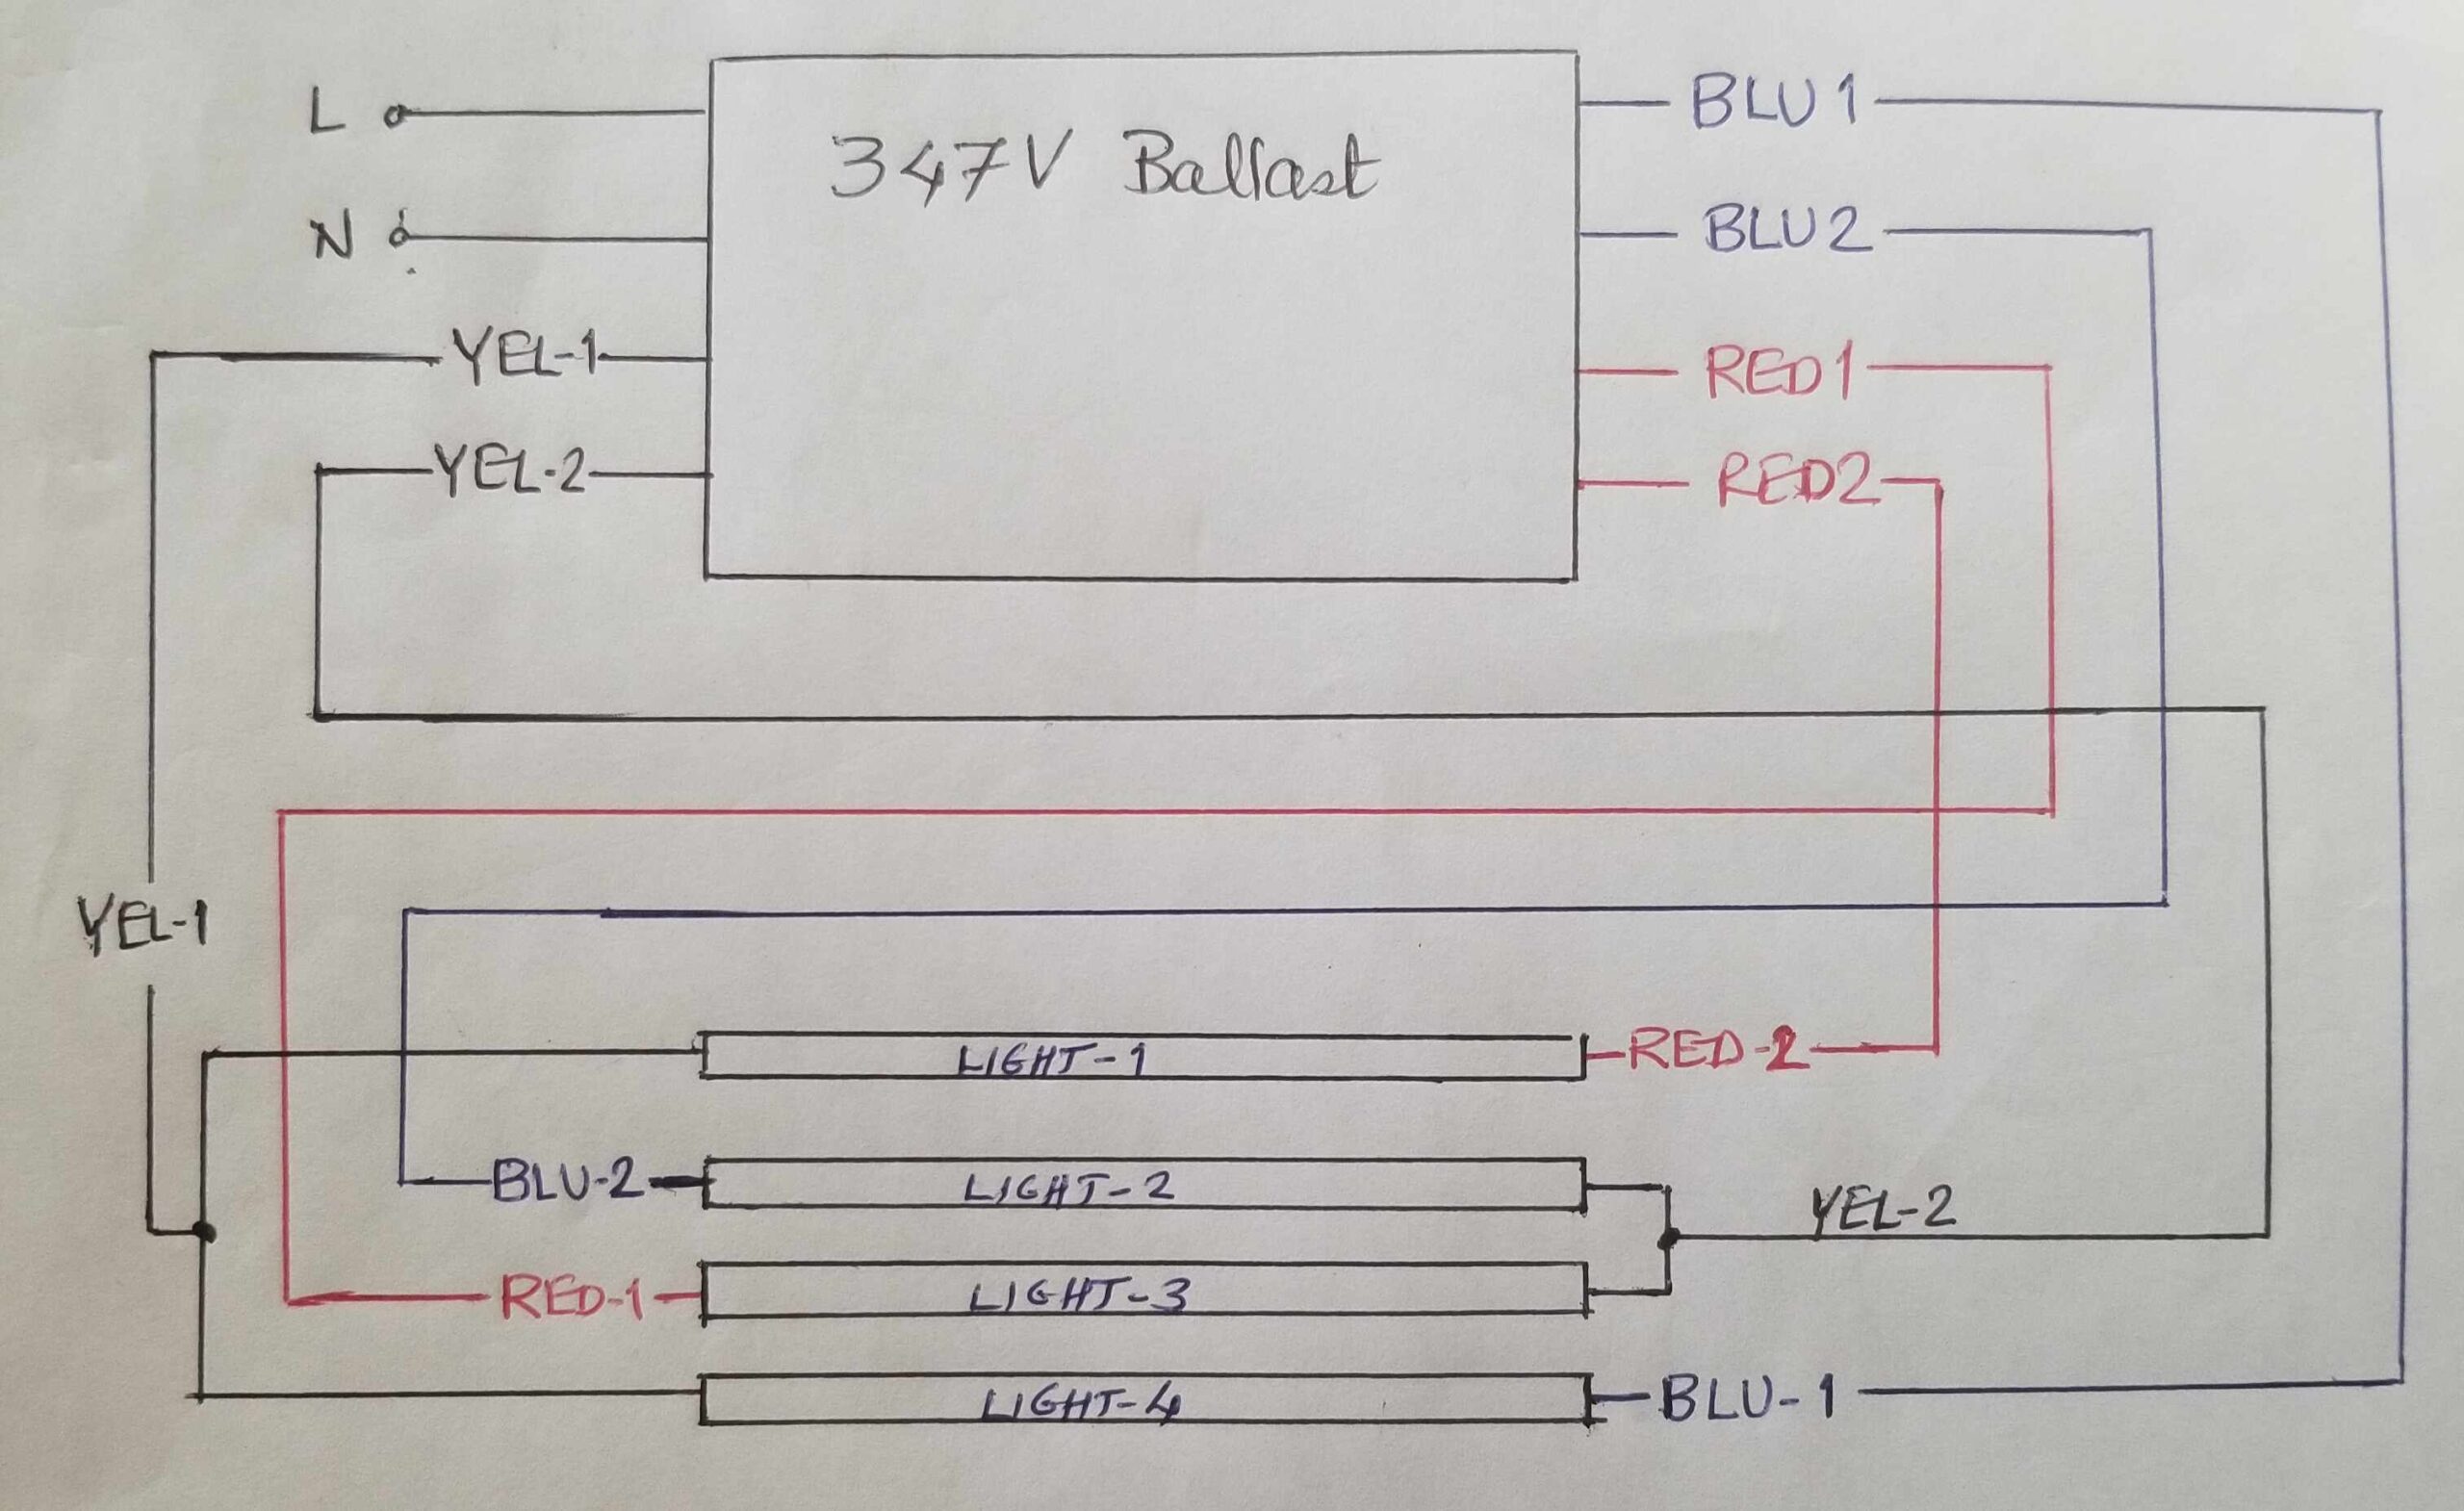 L
347V Ballast
BLU 1
N
BLU2
YEL-1
RED1
YEL-2
RED2
YEL-1
LIGHT-1
RED-2
BLU-2
LIGHT-2
YEL-2
RED-1
LIGHT-3
LIGHT-4
BLU-1